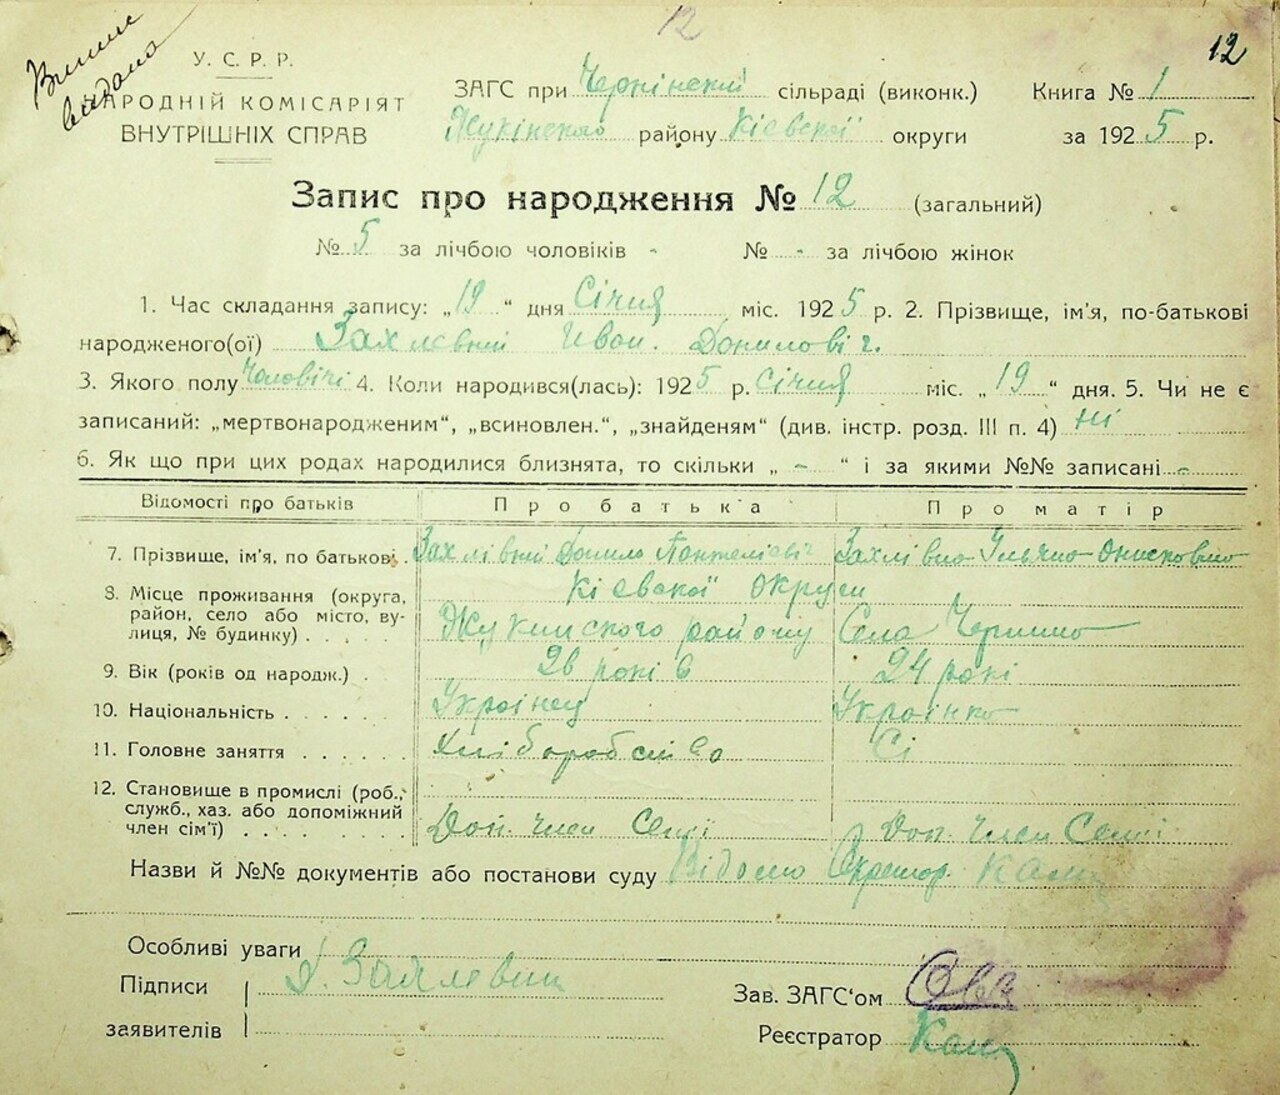 12
12
Виписи видано
У. С. Р. Р.
НАРОДНІЙ КОМІСАРІЯТ
ВНУТРІШНІХ СПРАВ
ЗАГС при Чернінский сільраді (виконк.)
Жукінского району Кіевской округи
Книга № 1
за 1925 р.
Запис про народження № 12 (загальний)
№ 5 за лічбою чоловіків - № - за лічбою жінок
1. Час складання запису: „19“ дня Січня міс. 1925 р. 2. Прізвище, ім'я, по-батькові
народженого(ої) Захлевний Иван. Данилович.
3. Якого полу Чоловічі 4. Коли народився(лась): 1925 р. Січня міс. „19“ дня. 5. Чи не є
записаний: „мертвонародженим“, „всиновлен.“, „знайденям“ (див. інстр. розд. III п. 4) Ні
6. Як що при цих родах народилися близнята, то скільки „ - “ і за якими №№ записані -
Відомості про батьків Про батька Про матір
7. Прізвище, ім'я, по батькові Захлівний Данило Пантеліевіч Захлівна Ульяна Онисковна
8. Місце проживання (округа, район, село або місто, вулиця, № будинку) Кіевскоі Округи
Жукинского району Села Чернино
9. Вік (років од народж.) 26 років 24 рокі
10. Національність Украінец Украінка
11. Головне заняття Хліборобство
12. Становище в промислі (роб., служб., хаз. або допоміжний член сім'ї) Доп. член Семі Доп. Член Семі
Назви й №№ документів або постанови суду Відомо
Особливі уваги
Підписи
заявителів
Д. Захлевний
Зав. ЗАГС'ом
Реєстратор